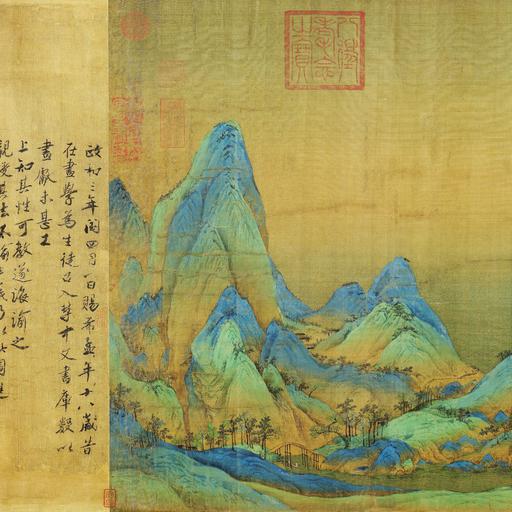 八徵
耄念
之寶
政和三年閏四月一日賜希孟年十八歲昔
在畫學為生徒召入禁中文書庫數以
畫獻未甚工
上知其性可教遂誨諭之
親受其法不逾半歲乃以此圖進